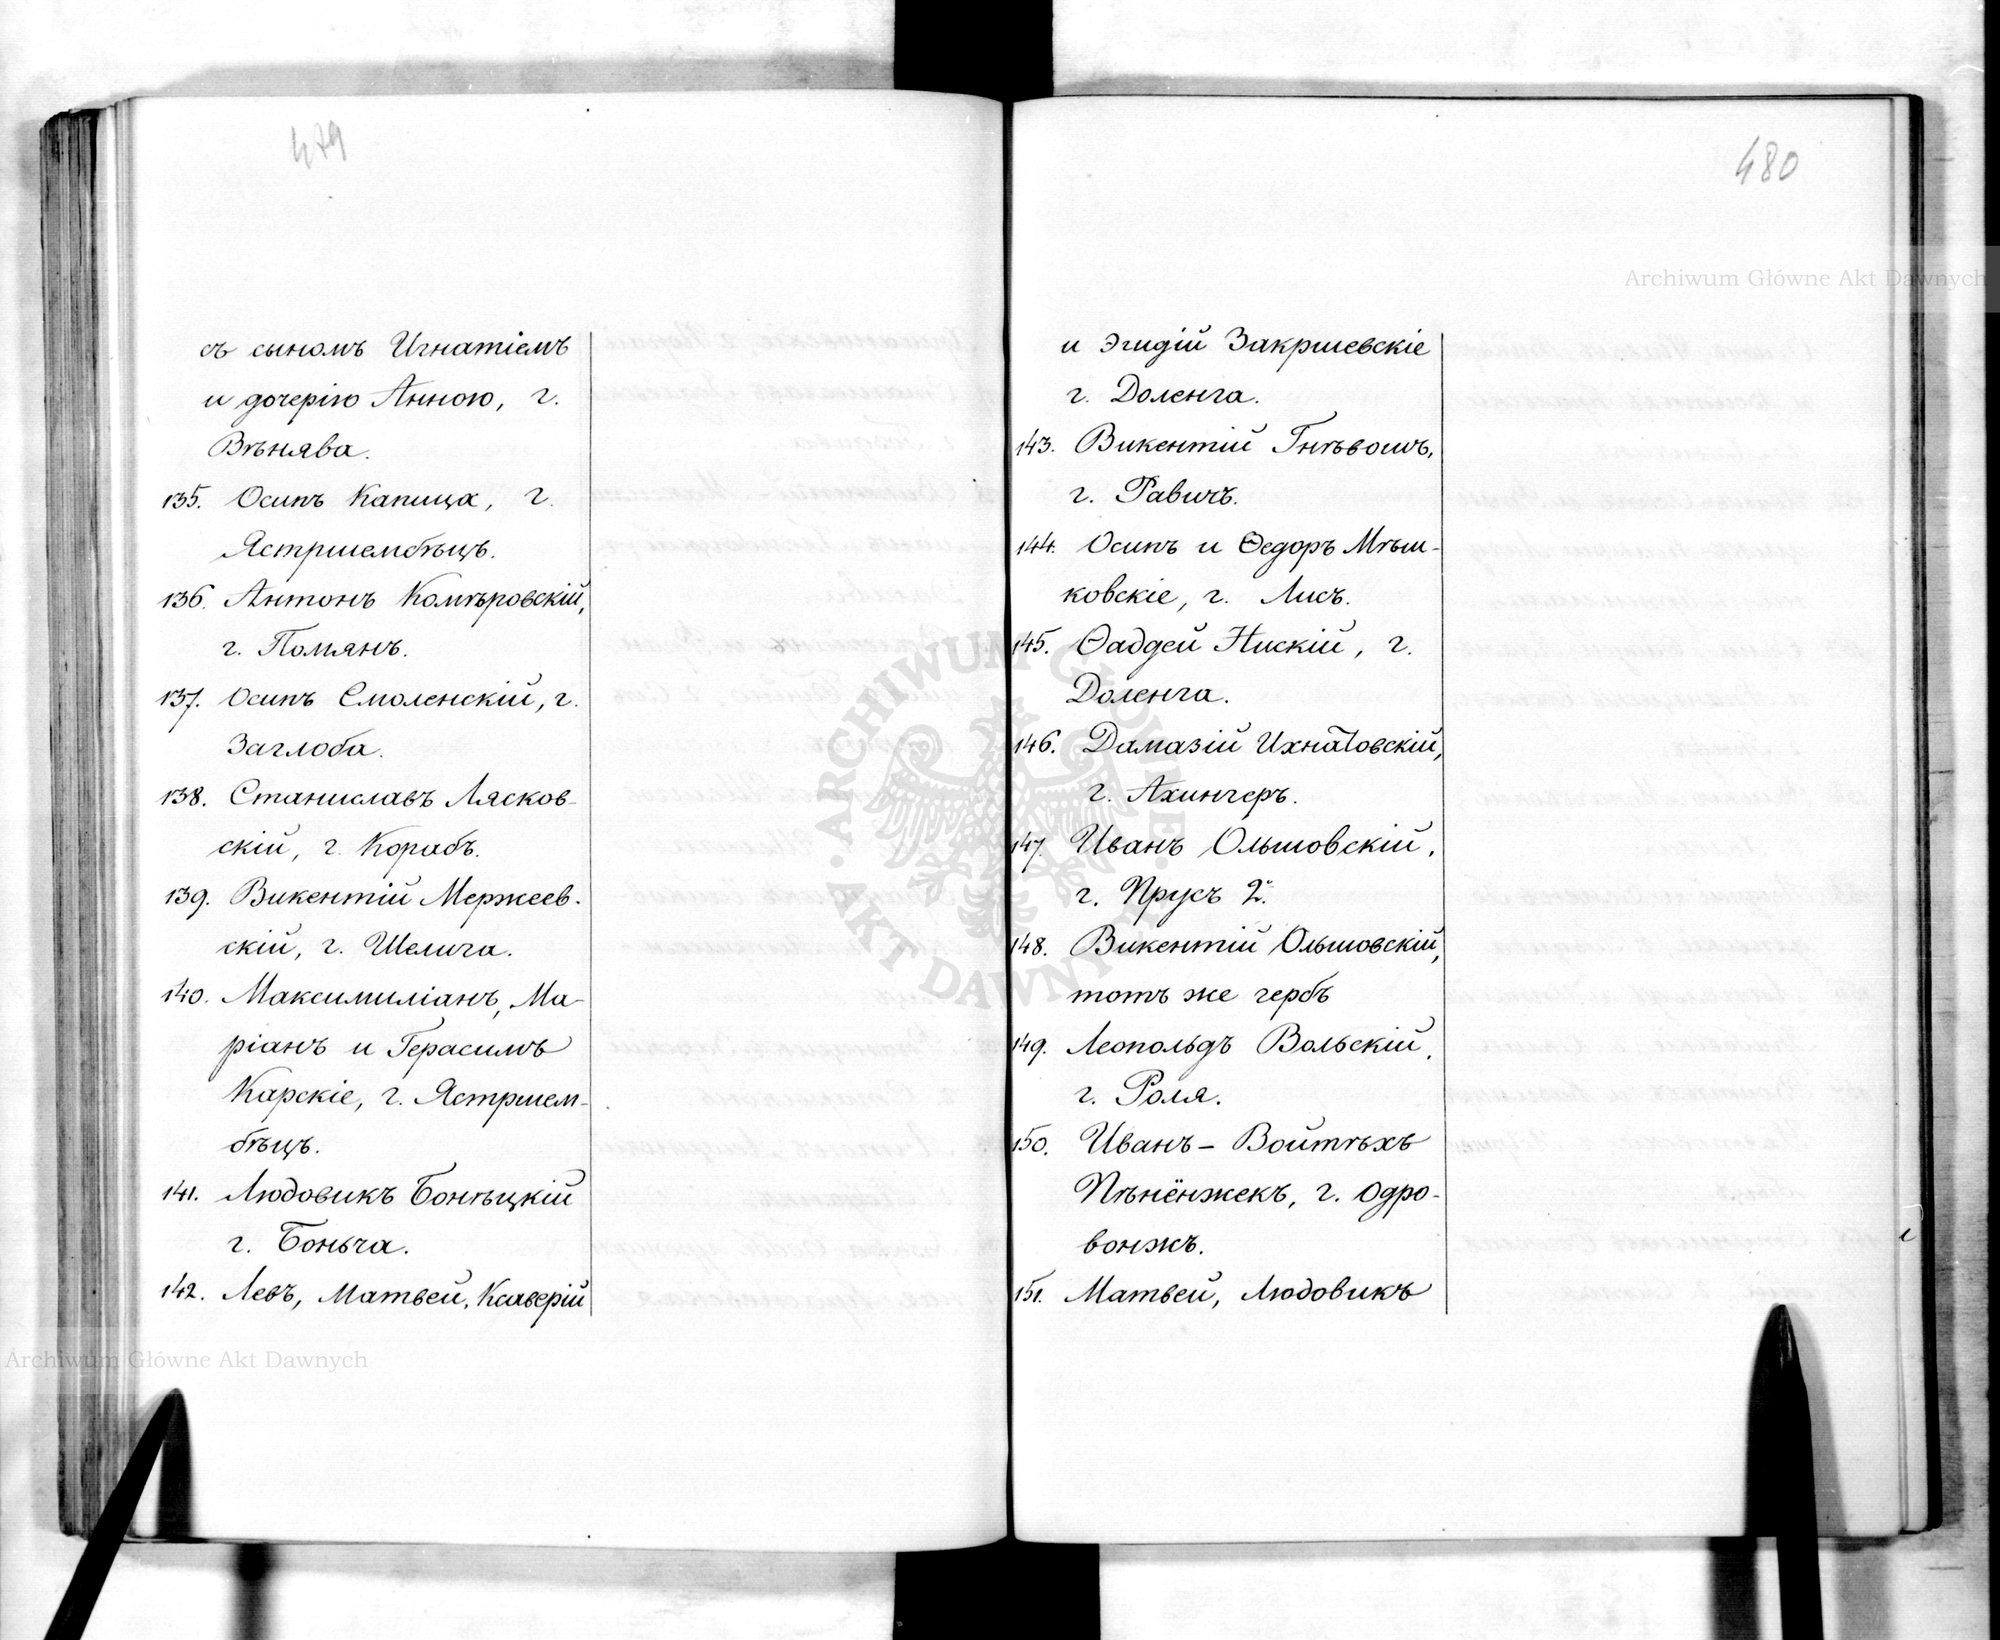 479
съ сыномъ Игнатіемъ
и дочерію Анною, г.
Вѣнява.
135. Осипъ Капица, г.
Ястршембѣцъ.
136. Антонъ Комѣровскій,
г. Помянъ.
137. Осипъ Смоленскій, г.
Заглоба.
138. Станиславъ Лясков-
скій, г. Корабъ.
139. Викентій Мержеев-
скій, г. Шелига.
140. Максимиліанъ, Ма-
ріанъ и Герасимъ
Карскіе, г. Ястршем-
бѣцъ.
141. Людовикъ Бонѣцкій
г. Боньча.
142. Левъ, Матвей, Ксаверій
Archiwum Główne Akt Dawnych
480
Archiwum Główne Akt Dawnych
и Эгидій Закршевскіе
г. Доленга.
143. Викентій Гнѣвошъ,
г. Равичъ.
144. Осипъ и Ѳедоръ Мѣш-
ковскіе, г. Лисъ.
145. Ѳаддей Нискій, г.
Доленга.
146. Дамазій Ихнатовскій,
г. Ахингеръ.
147. Иванъ Ольшовскій,
г. Прусъ 2.
148. Викентій Ольшовскій,
тотъ же гербъ
149. Леопольдъ Вольскій,
г. Роля.
150. Иванъ-Войтѣхъ
Пѣнёнжекъ, г. Одро-
вонжъ.
151. Матвей, Людовикъ
ARCHIWUM GŁÓWNE AKT DAWNYCH